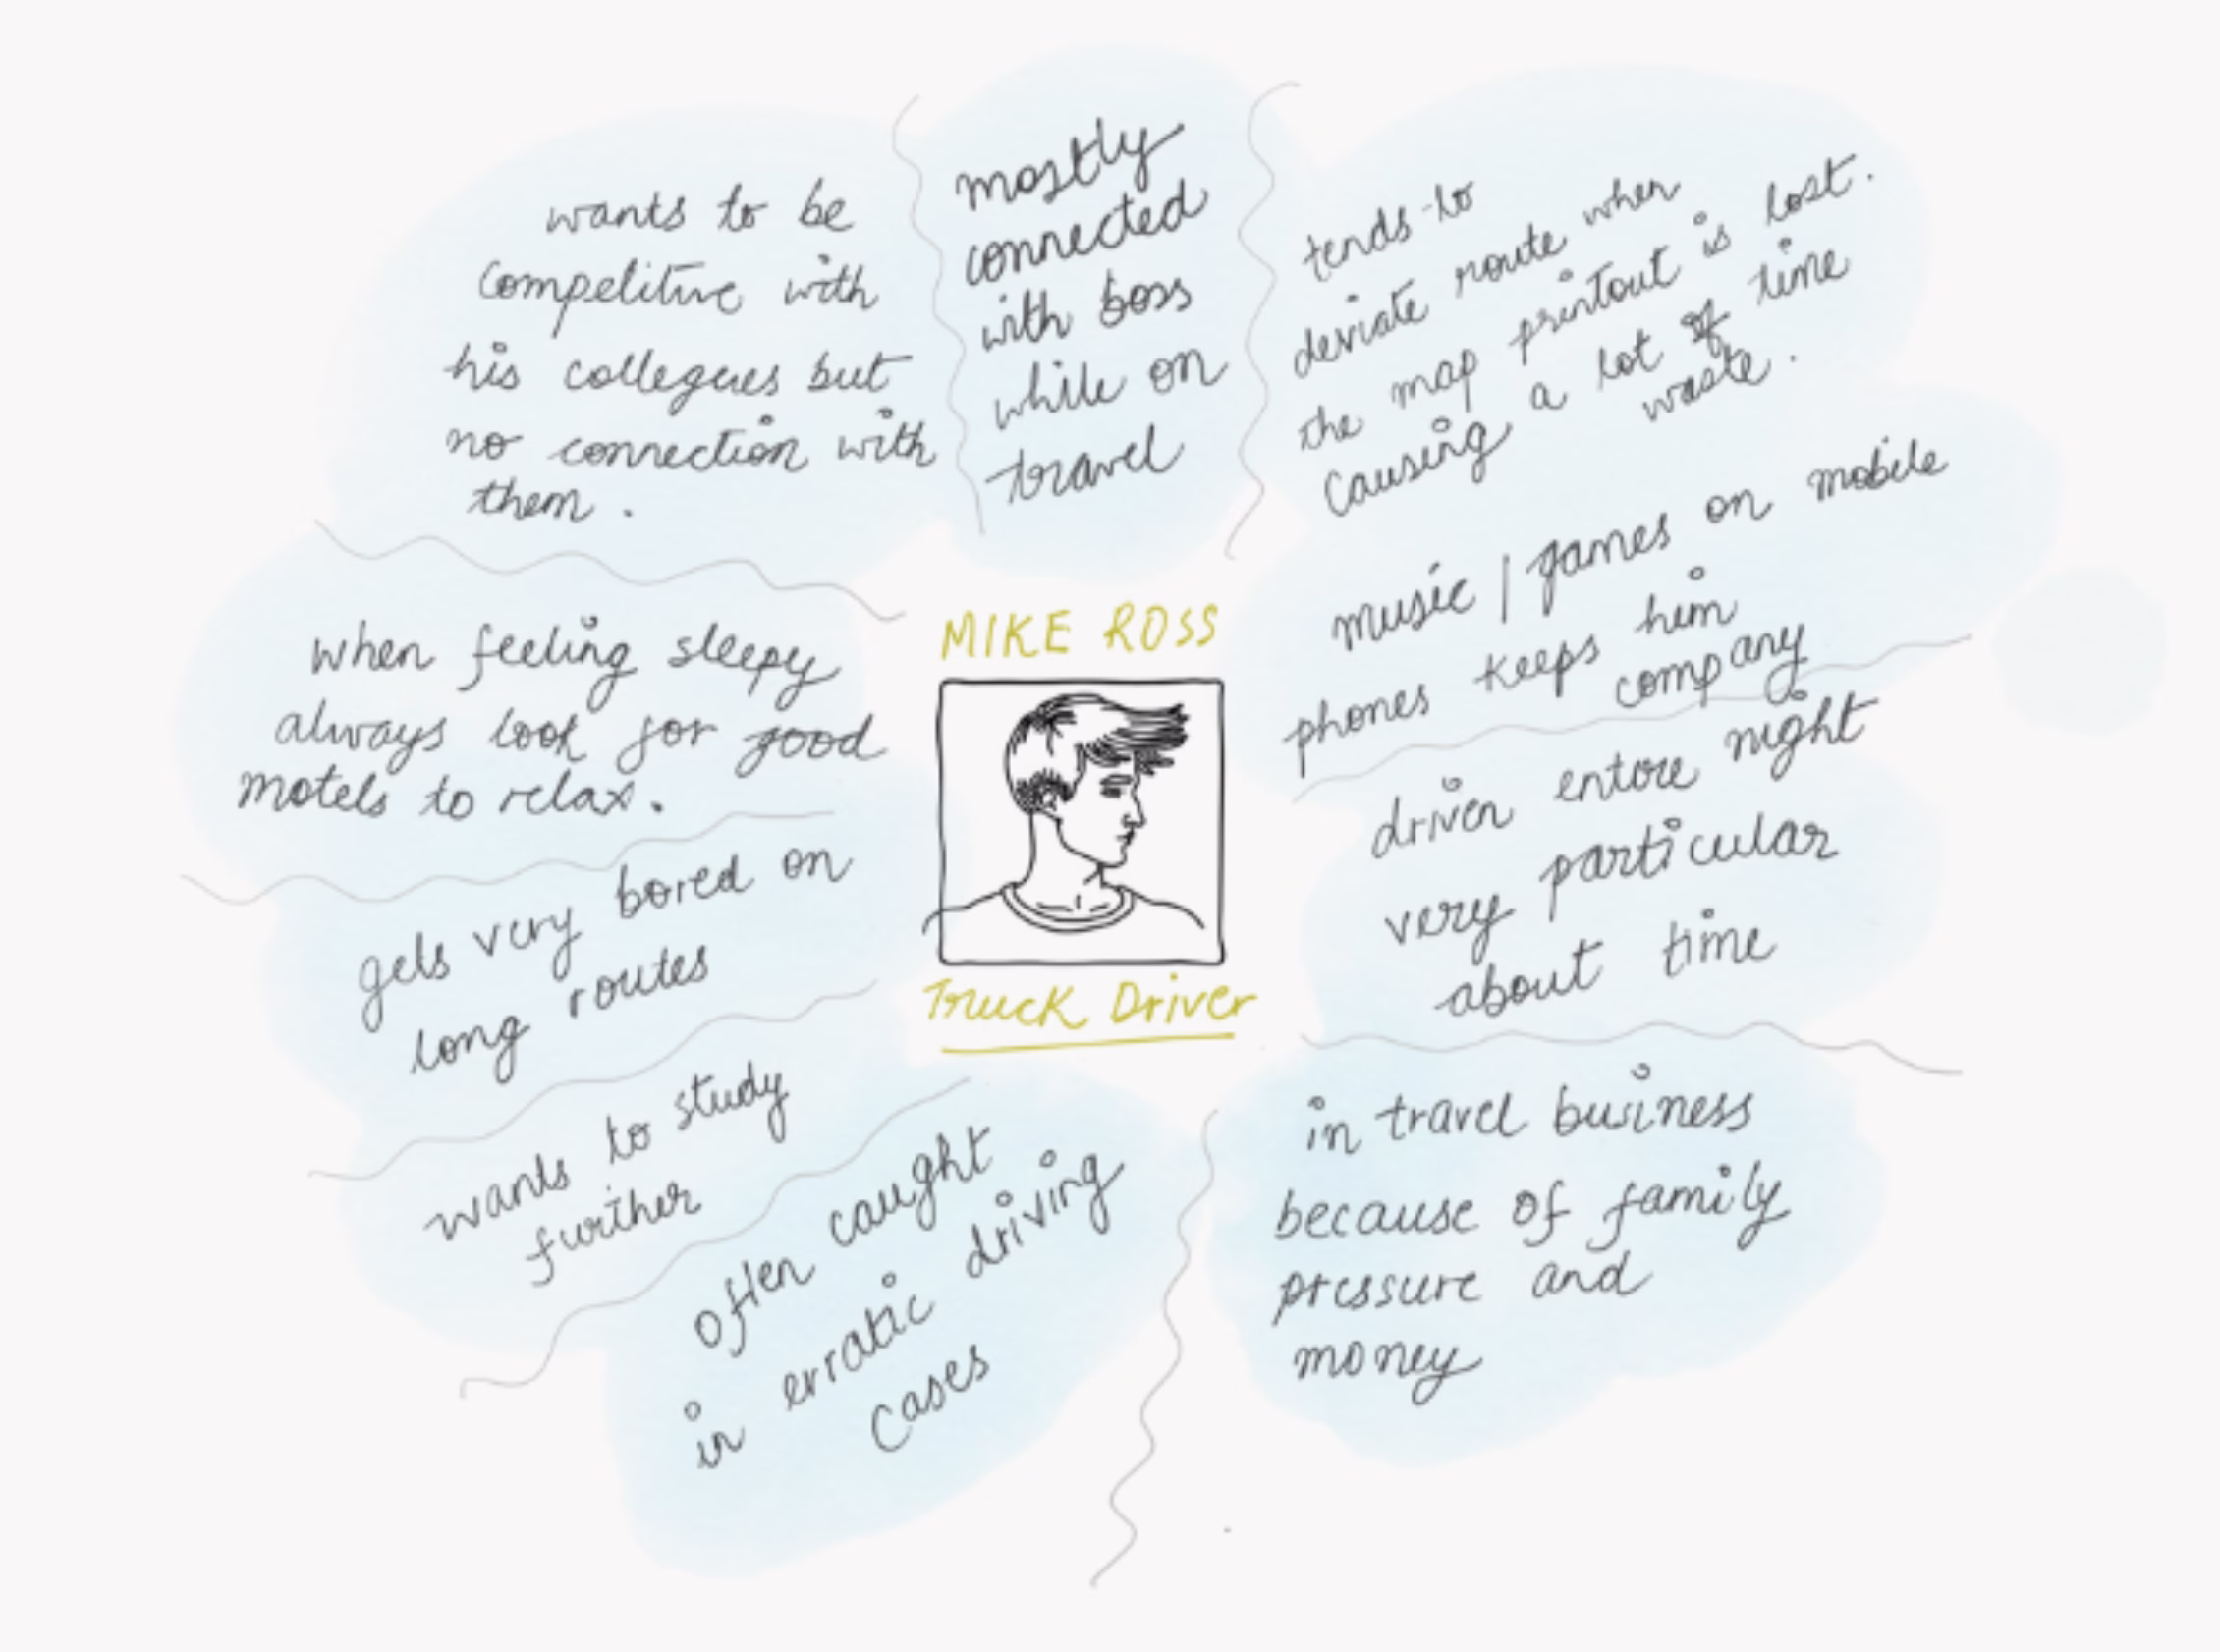 wants to be
competitive with
his collegues but
no connection with
them.
mostly
connected
with boss
while on
travel
tends to
deviate route when
the map printout is lost.
causing a lot of time
waste.
music / games on mobile
phones keeps him
company
when feeling sleepy
always look for good
motels to relax.
MIKE ROSS
Truck Driver
driven entire night
very particular
about time
gets very bored on
long routes
wants to study
further
often caught
in erratic driving
cases
in travel business
because of family
pressure and
money